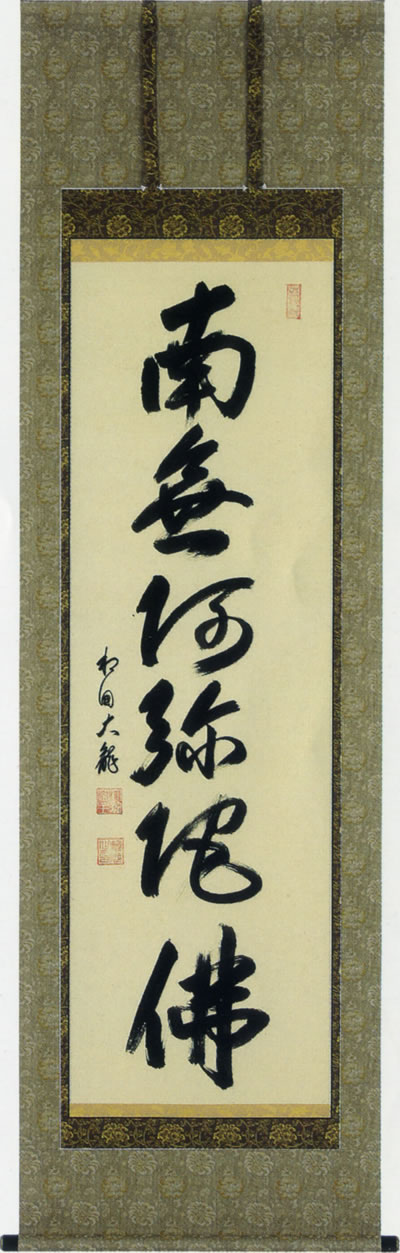 南無阿弥陀佛
和田大龍